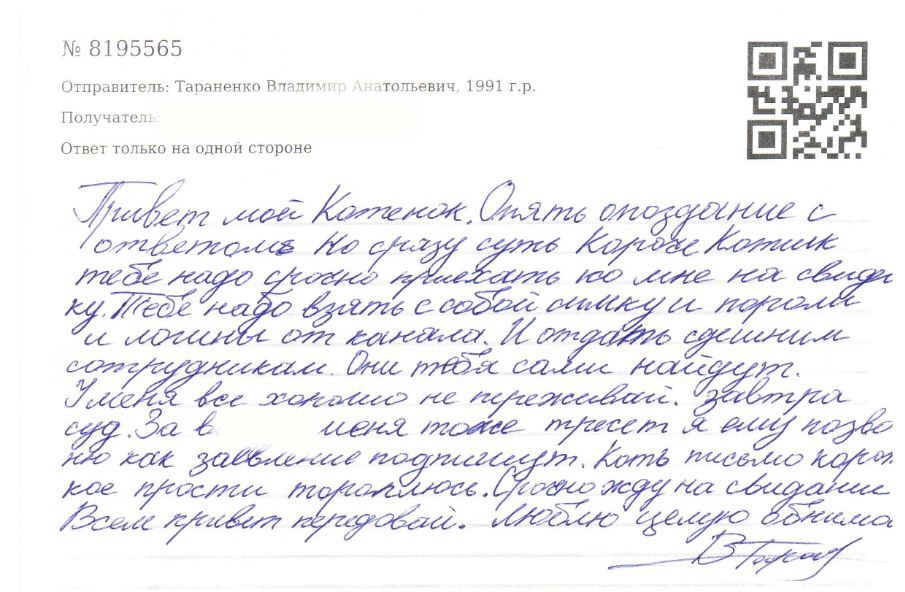 № 8195565
Отправитель: Тараненко Владимир Анатольевич, 1991 г.р.
Получатель:
Ответ только на одной стороне
Привет мой Котенок. Опять опоздание с
ответом. Но сразу суть Короче Котик
тебе надо срочно приехать ко мне на свида
ку. Тебе надо взять с собой симку и пароли
и логины от канала. И отдать сдешним
сотрудникам. Они тебя сами найдут.
У меня все хорошо не переживай. Завтра
суд. За в меня тоже тресет я ему позво
ню как заевление подпишут. Коть письмо корот
кое прости тороплюсь. Срочно жду на свидании
Всем привет передовай. Люблю целую обнима